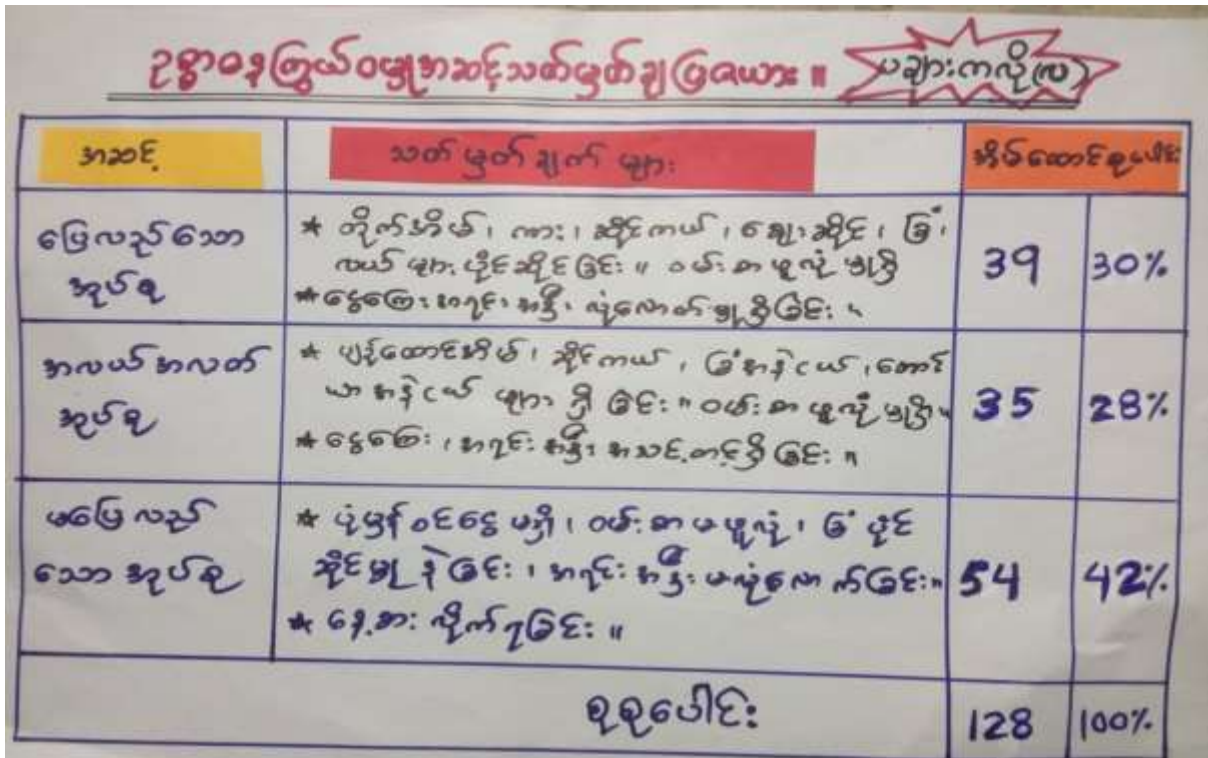 ဥစ္စာဓနကြွယ်ဝမှုအဆင့်သတ်မှတ်ချက်ဇယား ။ ပချားကလို(လ)
အဆင့် သတ်မှတ်ချက်များ အိမ်ထောင်စုပေါင်း
ပြေလည်သော
အုပ်စု
* တိုက်အိမ်၊ ကား၊ ဆိုင်ကယ်၊ ဈေးဆိုင်၊ ခြံ၊
လယ်များပိုင်ဆိုင်ခြင်း။ ဝမ်းစာဖူလုံမှုရှိ
* ငွေကြေးအရင်းအနှီး လုံလောက်မှုရှိခြင်း။
39 30%
အလယ်အလတ်
အုပ်စု
* ပျဉ်ထောင်အိမ်၊ ဆိုင်ကယ်၊ ခြံအနဲငယ်၊ တောင်
ယာအနဲငယ်များရှိခြင်း။ ဝမ်းစာဖူလုံမှုရှိ။
* ငွေကြေး၊ အရင်းအနှီး အသင့်တင့်ရှိခြင်း။
35 28%
မပြေလည်
သောအုပ်စု
* ပုံမှန်ဝင်ငွေမရှိ၊ ဝမ်းစာမဖူလုံ၊ ခြံပိုင်
ဆိုင်မှုနဲခြင်း၊ အရင်းအနှီးမလုံလောက်ခြင်း။
* နေ့စားလိုက်ရခြင်း။
54 42%
စုစုပေါင်း 128 100%